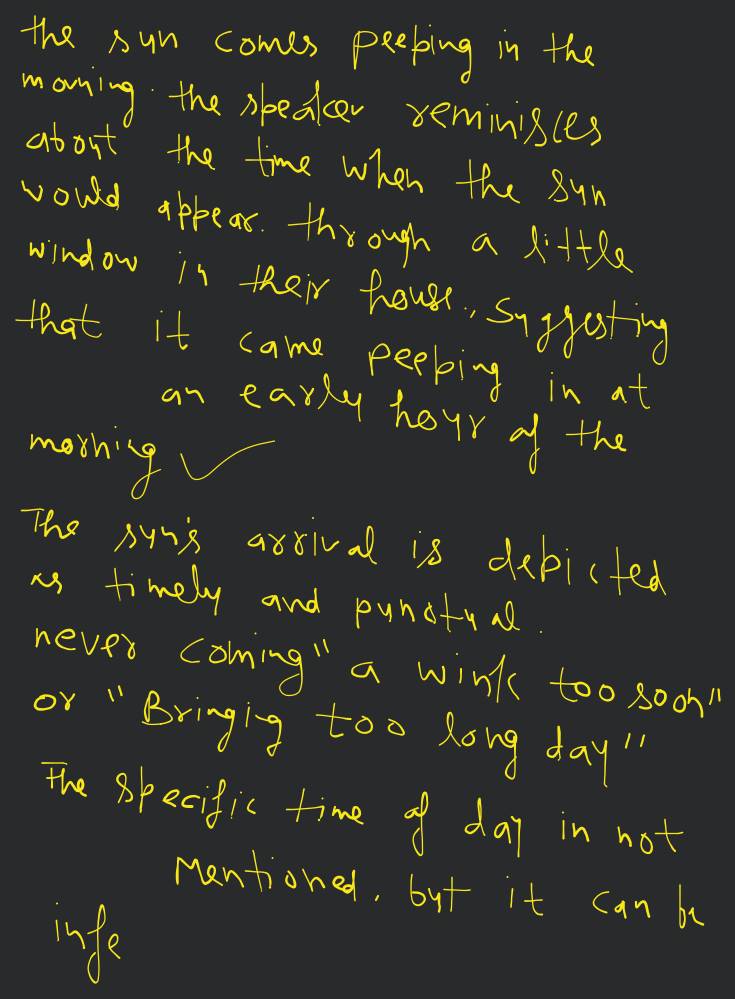 the sun comes peeping in the
morning. the speaker reminisces
about the time when the sun
would appear. through a little
window in their house., suggesting
that it came peeping in at
an early hour of the
morning ✓
The sun's arrival is depicted
as timely and punctual.
never coming "a wink too soon"
or "Bringing too long day"
The specific time of day in not
Mentioned, but it can be
infe